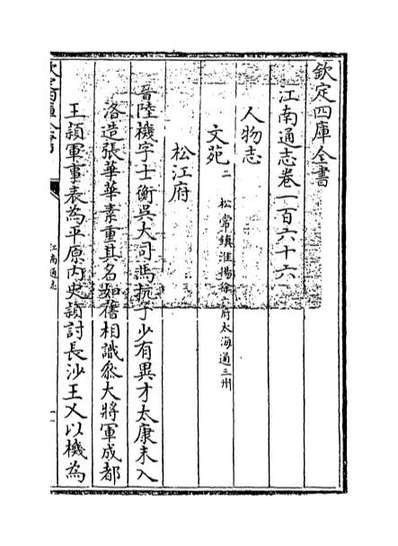 欽定四庫全書
江南通志卷一百六十六
人物志
文苑二 松常鎮淮揚徐六府太海通三州
松江府
晉陸機字士衡吳大司馬抗子少有異才太康末入
洛造張華華素重其名如舊相識參大將軍成都
王頴軍事表為平原內史頴討長沙王乂以機為
江南通志